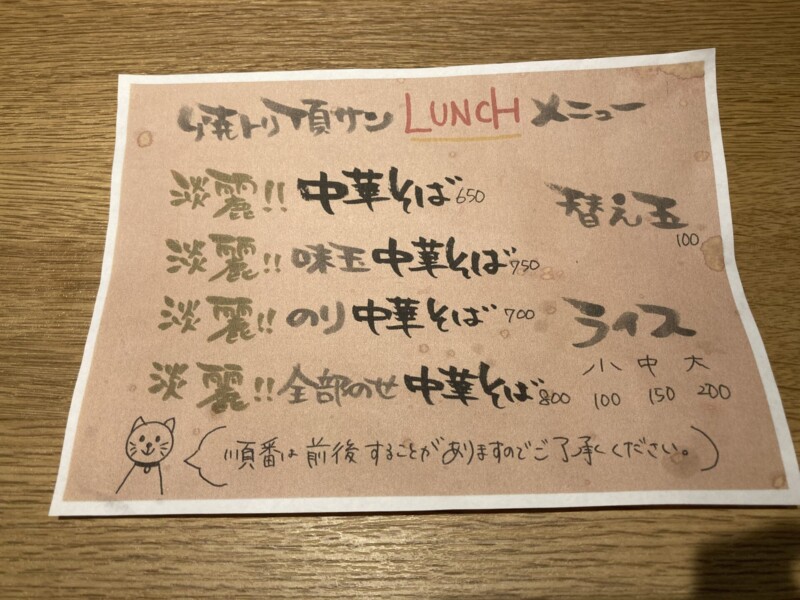 焼トリ頂サン LUNCH メニュー
淡麗!! 中華そば 650
淡麗!! 味玉 中華そば 750
淡麗!! のり 中華そば 700
淡麗!! 全部のせ 中華そば 800
替え玉
100
ライス
小 中 大
100 150 200
順番は前後することがありますのでご了承ください。